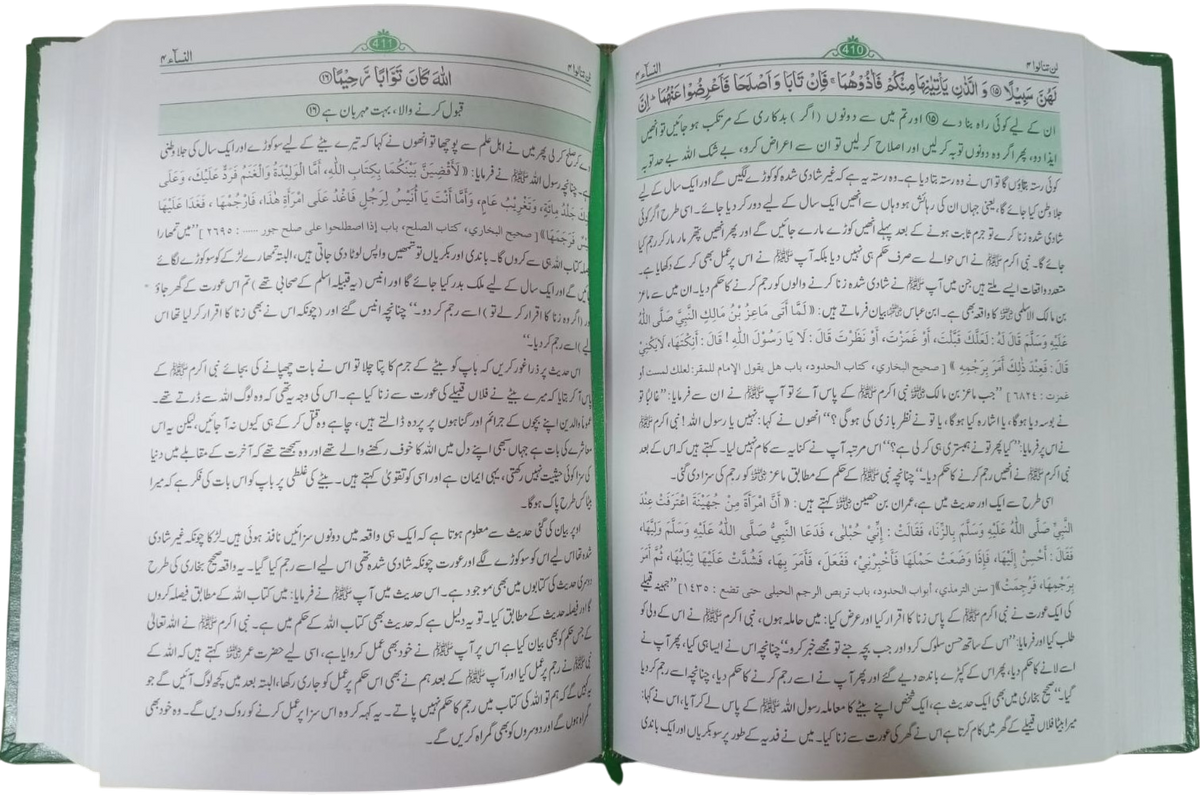 لن تنالوا ۴
410
النسآء ۴
لَهُنَّ سَبِيْلًا ⑮ وَ الَّذٰنِ يَاْتِيٰنِهَا مِنْكُمْ فَاٰذُوْهُمَا ۚ فَاِنْ تَابَا وَ اَصْلَحَا فَاَعْرِضُوْا عَنْهُمَا ؕ اِنَّ
ان کے لیے کوئی راہ بنا دے ⑮ اور تم میں سے دونوں ( اگر ) بدکاری کے مرتکب ہو جائیں تو انھیں
ایذا دو، پھر اگر وہ دونوں توبہ کر لیں اور اصلاح کر لیں تو ان سے اعراض کرو، بے شک اللہ بے حد توبہ
کوئی رستہ بتاؤں گا تو اس نے وہ رستہ بتا دیا ہے۔ وہ رستہ یہ ہے کہ غیر شادی شدہ کو کوڑے لگیں گے اور ایک سال کے لیے
جلا وطن کیا جائے گا، یعنی جہاں ان کی رہائش ہو وہاں سے انھیں ایک سال کے لیے دور کر دیا جائے۔ اسی طرح اگر کوئی
شادی شدہ زنا کرے تو جرم ثابت ہونے کے بعد پہلے انھیں کوڑے مارے جائیں گے اور پھر انھیں پتھر مار مار کر رجم کیا
جائے گا۔ نبی اکرم ﷺ نے اس حوالے سے صرف حکم ہی نہیں دیا بلکہ آپ ﷺ نے اس پر عمل بھی کر کے دکھایا ہے۔
متعدد واقعات ایسے ملتے ہیں جن میں آپ ﷺ نے شادی شدہ زنا کرنے والوں کو رجم کرنے کا حکم دیا۔ ان میں سے ماعز
بن مالک الاسلمی کا واقعہ بھی ہے۔ ابن عباس بیان فرماتے ہیں: « لَمَّا أَتَى مَاعِزُ بْنُ مَالِكٍ النَّبِيَّ صَلَّى اللّٰهُ
عَلَيْهِ وَسَلَّمَ قَالَ لَهُ: لَعَلَّكَ قَبَّلْتَ، أَوْ غَمَزْتَ، أَوْ نَظَرْتَ قَالَ: لَا يَا رَسُوْلَ اللّٰهِ ! قَالَ: أَنِكْتَهَا، لَا يَكْنِيْ
قَالَ: فَعِنْدَ ذٰلِكَ أَمَرَ بِرَجْمِهِ » [ صحيح البخاري، كتاب الحدود، باب هل يقول الإمام للمقر: لعلك لمست أو
غمزت : ٦٨٢٤ ] ’’جب ماعز بن مالک نبی اکرم ﷺ کے پاس آئے تو آپ ﷺ نے ان سے فرمایا: ’’غالبًا تو
نے بوسہ دیا ہوگا، یا اشارہ کیا ہوگا، یا تو نے نظر بازی کی ہوگی؟‘‘ انھوں نے کہا: نہیں یا رسول اللہ! نبی اکرم ﷺ
نے اس پر فرمایا: ’’کیا پھر تو نے ہمبستری ہی کر لی ہے؟‘‘ اس مرتبہ آپ نے کنایہ سے کام نہیں لیا۔ کہتے ہیں کہ اس کے بعد
نبی اکرم ﷺ نے انھیں رجم کرنے کا حکم دیا۔‘‘ چنانچہ نبی ﷺ کے حکم کے مطابق ماعز کو رجم کی سزا دی گئی۔
اسی طرح سے ایک اور حدیث میں ہے، عمران بن حصین کہتے ہیں: « أَنَّ امْرَأَةً مِنْ جُهَيْنَةَ اعْتَرَفَتْ عِنْدَ
النَّبِيِّ صَلَّى اللّٰهُ عَلَيْهِ وَسَلَّمَ بِالزِّنَا، فَقَالَتْ: إِنِّيْ حُبْلٰى، فَدَعَا النَّبِيُّ صَلَّى اللّٰهُ عَلَيْهِ وَسَلَّمَ وَلِيَّهَا،
فَقَالَ: أَحْسِنْ إِلَيْهَا، فَإِذَا وَضَعَتْ حَمْلَهَا فَأَخْبِرْنِيْ، فَفَعَلَ، فَأَمَرَ بِهَا، فَشُدَّتْ عَلَيْهَا ثِيَابُهَا، ثُمَّ أَمَرَ
بِرَجْمِهَا، فَرُجِمَتْ » [ سنن الترمذي، أبواب الحدود، باب تربص الرجم الحبلى حتى تضع : ١٤٣٥ ] ’’جہینہ قبیلے
کی ایک عورت نے نبی اکرم ﷺ کے پاس زنا کا اقرار کیا اور عرض کیا: میں حاملہ ہوں، نبی اکرم ﷺ نے اس کے ولی کو
طلب کیا اور فرمایا: ’’اس کے ساتھ حسن سلوک کرو اور جب بچہ جنے تو مجھے خبر کرو۔‘‘ چنانچہ اس نے ایسا ہی کیا، پھر آپ نے
اسے لانے کا حکم دیا، پھر اس کے کپڑے باندھ دیے گئے اور پھر آپ نے اسے رجم کرنے کا حکم دیا، چنانچہ اسے رجم کر دیا
گیا۔‘‘ صحیح بخاری میں بھی ایک حدیث ہے، ایک شخص اپنے بیٹے کا معاملہ رسول اللہ ﷺ کے پاس لے کر آیا، اس نے کہا:
میرا بیٹا فلاں قبیلے کے گھر میں کام کرتا ہے اس نے گھر کی عورت سے زنا کیا۔ میں نے فدیہ کے طور پر سو بکریاں اور ایک باندی
لن تنالوا ۴
411
النسآء ۴
اللّٰهَ كَانَ تَوَّابًا رَّحِيْمًا ⑯
قبول کرنے والا، بہت مہربان ہے ⑯
دے کر صلح کر لی پھر میں نے اہل علم سے پوچھا تو انھوں نے کہا کہ تیرے بیٹے کے لیے سو کوڑے اور ایک سال کی جلا وطنی
ہے۔ چنانچہ رسول اللہ ﷺ نے فرمایا: « لَأَقْضِيَنَّ بَيْنَكُمَا بِكِتَابِ اللّٰهِ، أَمَّا الْوَلِيْدَةُ وَالْغَنَمُ فَرَدٌّ عَلَيْكَ، وَعَلَى
جَلْدُ مِائَةٍ، وَتَغْرِيْبُ عَامٍ، وَأَمَّا أَنْتَ يَا أُنَيْسُ لِرَجُلٍ فَاغْدُ عَلَى امْرَأَةِ هٰذَا، فَارْجُمْهَا ، فَغَدَا عَلَيْهَا
فَرَجَمَهَا » [ صحيح البخاري، كتاب الصلح، باب إذا اصطلحوا على صلح جور ...... : ٢٦٩٥ ] ’’میں تمھارا
کتاب اللہ ہی سے کروں گا۔ باندی اور بکریاں تو تمھیں واپس لوٹا دی جاتی ہیں، البتہ تمھارے لڑکے کو سو کوڑے لگائے
جائیں گے اور ایک سال کے لیے ملک بدر کیا جائے گا اور انیس (یہ قبیلہ اسلم کے صحابی تھے ) تم اس عورت کے گھر جاؤ
(اگر وہ زنا کا اقرار کر لے تو) اسے رجم کر دو۔‘‘ چنانچہ انیس گئے اور (چونکہ اس نے بھی زنا کا اقرار کر لیا تھا اس
لیے) اسے رجم کر دیا۔‘‘
اس حدیث پر ذرا غور کریں کہ باپ کو بیٹے کے جرم کا پتا چلا تو اس نے بات چھپانے کی بجائے نبی اکرم ﷺ کے
پاس آ کر بتایا کہ میرے بیٹے نے فلاں قبیلے کی عورت سے زنا کیا ہے۔ اس کی وجہ یہ تھی کہ وہ لوگ اللہ سے ڈرتے تھے۔
والدین اپنے بچوں کے جرائم اور گناہوں پر پردہ ڈالتے ہیں، چاہے وہ قتل کر کے ہی کیوں نہ آ جائیں، لیکن یہ اس
معاشرے کی بات ہے جہاں سبھی اپنے دل میں اللہ کا خوف رکھنے والے تھے اور وہ سمجھتے تھے کہ آخرت کے مقابلے میں دنیا
کی سزا کوئی حیثیت نہیں رکھتی، یہی ایمان ہے اور اسی کو تقویٰ کہتے ہیں۔ بیٹے کی غلطی پر باپ کو اس بات کی فکر ہے کہ میرا
بیٹا کس طرح پاک ہوگا۔
اوپر بیان کی گئی حدیث سے معلوم ہوتا ہے کہ ایک ہی واقعہ میں دونوں سزائیں نافذ ہوئی ہیں۔ لڑکا چونکہ غیر شادی
شدہ تھا اس لیے اس کو سو کوڑے لگے اور عورت چونکہ شادی شدہ تھی اس لیے اسے رجم کیا گیا۔ یہ واقعہ صحیح بخاری کی طرح
دوسری حدیث کی کتابوں میں بھی موجود ہے۔ اس حدیث میں آپ ﷺ نے فرمایا: میں کتاب اللہ کے مطابق فیصلہ کروں
گا اور فیصلہ حدیث کے مطابق کیا۔ تو یہ دلیل ہے کہ حدیث بھی کتاب اللہ کے حکم میں ہے۔ نبی اکرم ﷺ نے اللہ تعالیٰ
کے جس حکم کو بھی بیان کیا ہے اس پر آپ ﷺ نے خود بھی عمل کروایا ہے، اسی لیے حضرت عمر کہتے ہیں کہ اللہ کے
نبی ﷺ نے رجم پر عمل کیا اور آپ ﷺ کے بعد ہم نے بھی اس حکم پر عمل کو جاری رکھا، البتہ بعد میں کچھ لوگ آئیں گے جو
یہ کہیں گے کہ ہم تو اللہ کی کتاب میں رجم کا حکم نہیں پاتے۔ یہ کہہ کر وہ اس سزا پر عمل کرنے کو روک دیں گے۔ وہ خود بھی
گمراہ ہوں گے اور دوسروں کو بھی گمراہ کریں گے۔